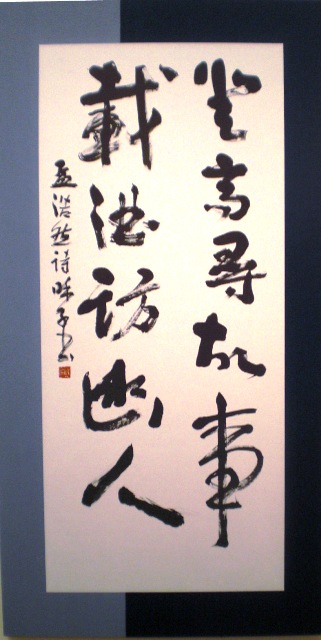 登高尋故事
載酒訪幽人
孟浩然詩